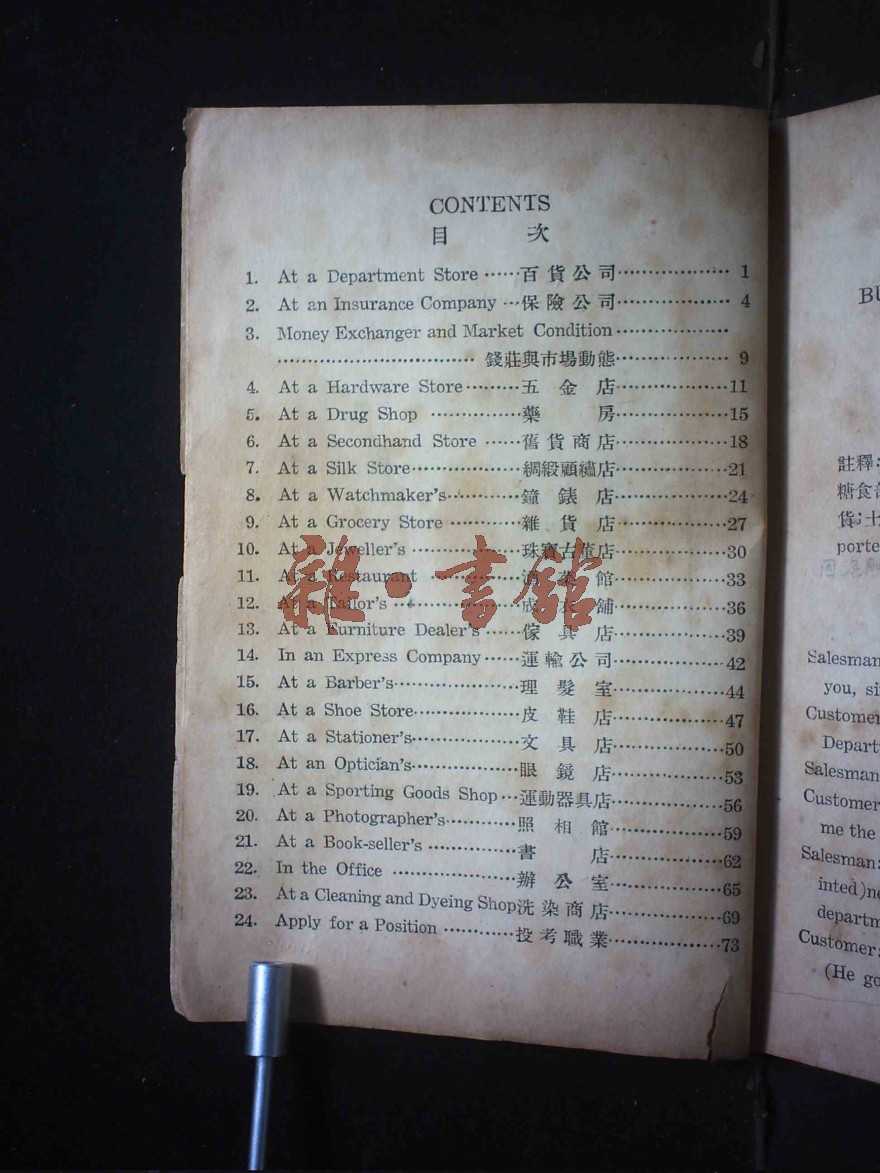 CONTENTS
目 次
1. At a Department Store ······百貨公司·················· 1
2. At an Insurance Company ···保險公司·················· 4
3. Money Exchanger and Market Condition··················
································ 錢莊與市場動態·················· 9
4. At a Hardware Store·········五金店··················11
5. At a Drug Shop ··············藥房··················15
6. At a Secondhand Store ······舊貨商店··················18
7. At a Silk Store··················綢緞顧繡店··················21
8. At a Watchmaker's············鐘錶店··················24
9. At a Grocery Store ············雜貨店··················27
10. At a Jeweller's ··················珠寶古董店··················30
11. At a Restaurant ···············酒菜館··················33
12. At a Tailor's ·····················成衣舖··················36
13. At a Furniture Dealer's ······傢具店··················39
14. In an Express Company······運輸公司··················42
15. At a Barber's·····················理髮室··················44
16. At a Shoe Store··················皮鞋店··················47
17. At a Stationer's··················文具店··················50
18. At an Optician's··················眼鏡店··················53
19. At a Sporting Goods Shop ···運動器具店··················56
20. At a Photographer's············照相館··················59
21. At a Book-seller's ···············書店··················62
22. In the Office ·····················辦公室··················65
23. At a Cleaning and Dyeing Shop洗染商店··················69
24. Apply for a Position ············投考職業··················73
雜·書館
BU
註釋:
糖食
貨;十
porte
Salesman
you, si
Customer
Depart
Salesman
Customer
me the
Salesman:
inted)ne
departm
Customer:
(He go